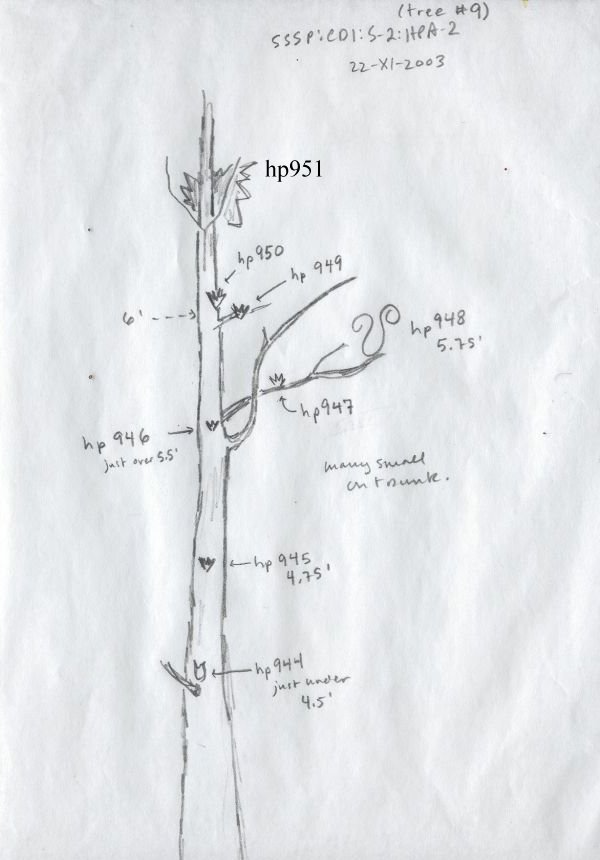 (tree #9)
SSSP:CD1:S-2:HPA-2
22-XI-2003
hp951
hp950
hp 949
6'
hp948
5.75'
hp947
hp 946
just over 5.5'
many small
on trunk.
hp 945
4.75'
hp944
just under
4.5'